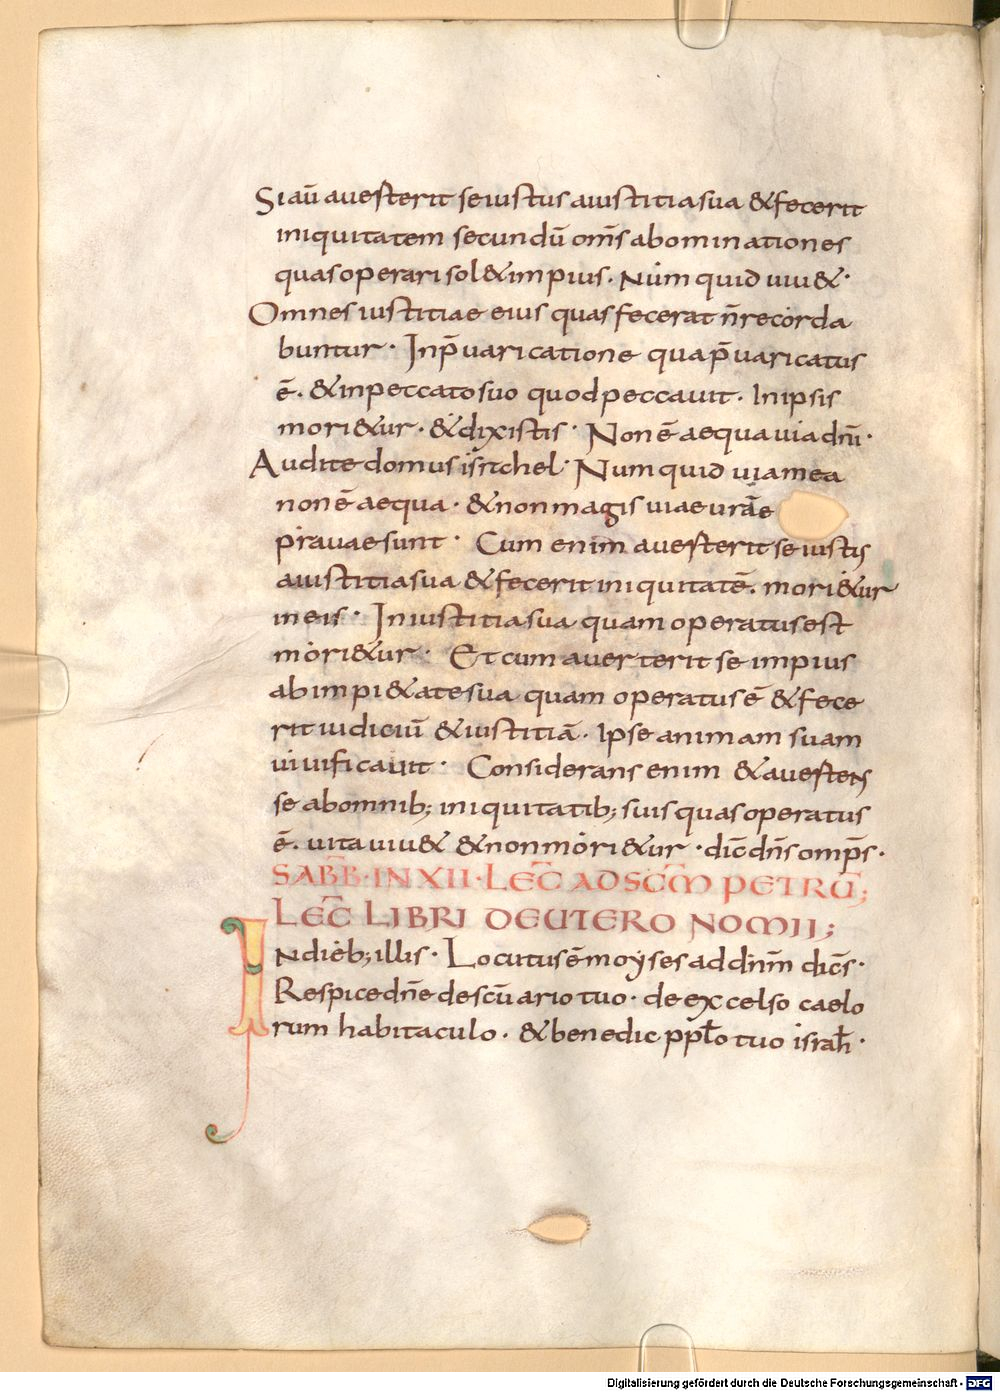 Siaū aueſterit se iustus aiustitia sua & fecerit
iniquitatem secundū om̄s abominationes
quas operari sol& impius · Numquid uiu& ·
Omnes iustitiae eius quas fecerat n̄ recorda
buntur · In p̄uaricatione qua p̄uaricatus
ē · & in peccato suo quod peccauit · In ipsis
mori&ur · & dixistis · Non ē aequa uia dn̄i ·
Audite domus isr̄ahel · Numquid uia mea
non ē aequa · & non magis uiae ur̄ae
prauae sunt · Cum enim aueſterit se iustus
aiustitia sua & fecerit iniquitatē · mori&ur
in eis · In iustitia sua quam operatus est
mori&ur · Et cum auerterit se impius
ab impi&ate sua quam operatus ē & fece
rit iudiciū & iustitiā · Ipse animam suam
uiuificauit · Considerans enim & auertens
se ab omnib; iniquitatib; suis quas operatus
ē · uita uiu& & non mori&ur · dic̄ dn̄s omp̄s ·
SABB̄ · IN XII · LEC̄ AD SC̄M PETRŪ;
LEC̄ LIBRI DEUTERONOMII;
In dieb; illis · Locutus ē moyses ad dn̄m dic̄s ·
Respice dn̄e de sc̄uario tuo · de excelso caelo
rum habitaculo · & benedic ppl̄o tuo israh̄l ·
Digitalisierung gefördert durch die Deutsche Forschungsgemeinschaft - DFG